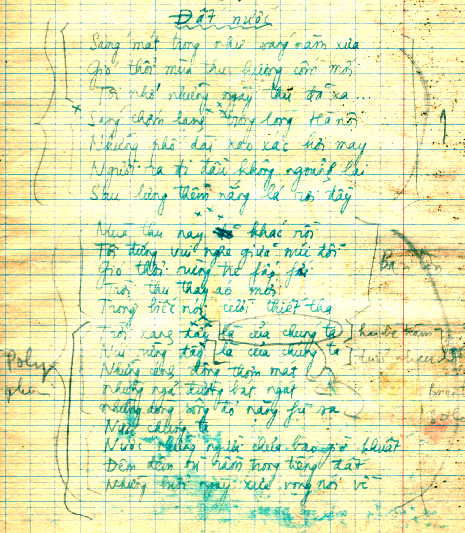 Đất nước
Sáng mát trong như sáng năm xưa
Gió thổi mùa thu hương cốm mới
Tôi nhớ những ngày thu đã xa...
Sáng chớm lạnh trong lòng Hà nội
Những phố dài xao xác hơi may
Người ra đi đầu không ngoảnh lại
Sau lưng thềm nắng lá rơi đầy
Mùa thu nay khác rồi
Tôi đứng vui nghe giữa núi đồi
Gió thổi rừng tre phấp phới
Trời thu thay áo mới
Trong biếc nói cười thiết tha
Trời xanh đây là của chúng ta
Núi rừng đây là của chúng ta
Những cánh đồng thơm mát
những ngả đường bát ngát
những dòng sông đỏ nặng phù sa
Nước chúng ta
Nước những người chưa bao giờ khuất
Đêm đêm rì rầm trong tiếng đất
Những buổi ngày xưa vọng nói về
1
Poly